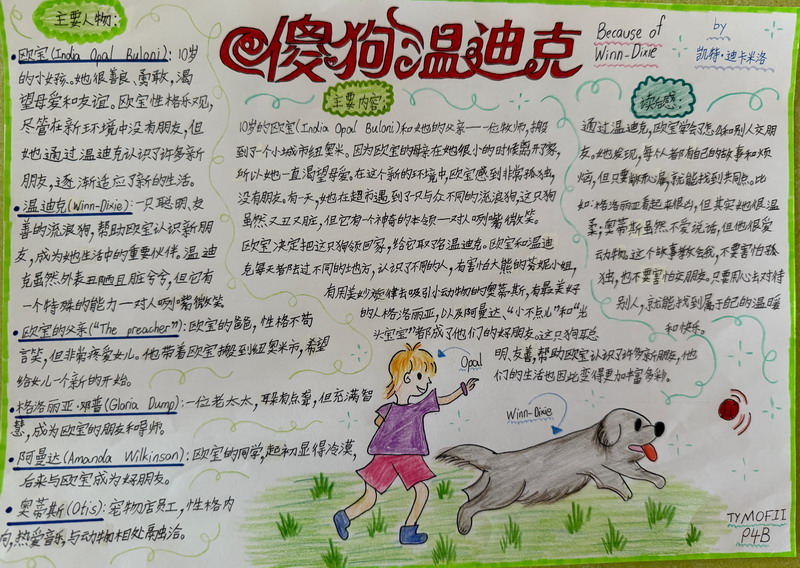 傻狗温迪克
Because of
Winn-Dixie
by
凯特·迪卡米洛
主要人物:
• 欧宝(India Opal Buloni): 10岁
的小女孩。她很善良、勇敢,渴
望母爱和友谊。欧宝性格乐观,
尽管在新环境中没有朋友,但
她通过温迪克认识了许多新
朋友,逐渐适应了新的生活。
• 温迪克(Winn-Dixie): 一只聪明、友
善的流浪狗,帮助欧宝认识新朋
友,成为她生活中的重要伙伴。温迪
克虽然外表丑陋且脏兮兮,但它有
一个特殊的能力一对人咧嘴微笑
• 欧宝的父亲("The preacher"): 欧宝的爸爸,性格不苟
言笑,但非常疼爱女儿。他带着欧宝搬到纽奥米市,希望
给女儿一个新的开始。
• 格洛丽亚·邓普(Gloria Dump): 一位老太太,耳有点聋,但充满智
慧,成为欧宝的朋友和导师。
• 阿曼达(Amanda Wilkinson): 欧宝的同学,起初显得冷漠,
后来与欧宝成为好朋友。
• 奥蒂斯(Otis): 宠物店员工,性格内
向,热爱音乐,与动物相处融洽。
主要内容:
10岁的欧宝(India Opal Buloni)和她的父亲一一位牧师,搬
到了一个小城市纽奥米。因为欧宝的母亲在她很小的时候离开了家,
所以她一直渴望母爱。在这个新的环境中,欧宝感到非常孤独,
没有朋友。有一天,她在超市遇到了一只与众不同的流浪狗,这只狗
虽然又丑又脏,但它有一个神奇的本领一对人咧嘴微笑。
欧宝决定把这只狗领回家,给它取名温迪克。欧宝和温迪
克每天都去过不同的地方,认识了不同的人,有害怕大熊的芬妮小姐,
有用美妙旋律去吸引小动物的奥蒂斯,有最美好
的人格洛丽亚,以及阿曼达、"小不点儿"和"光
头宝宝"都成了他们的好朋友。这只狗聪
明、友善,帮助欧宝认识了许多新朋友,他
们的生活也因此变得更加丰富多彩。
读后感:
通过温迪克,欧宝学会了怎么和别人交朋
友。她发现,每个人都有自己的故事和烦
恼,但只要敞心扉,就能找到共同点。比
如:格洛丽亚看起来很凶,但其实她很温
柔,奥蒂斯虽然不爱说话,但他很爱
动物。这个故事教会我,不要害怕孤
独,也不要害怕交朋友。只要用心去对待
别人,就能找到属于自己的温暖
和快乐。
Opal
Winn-Dixie
TYMOFII
P4B